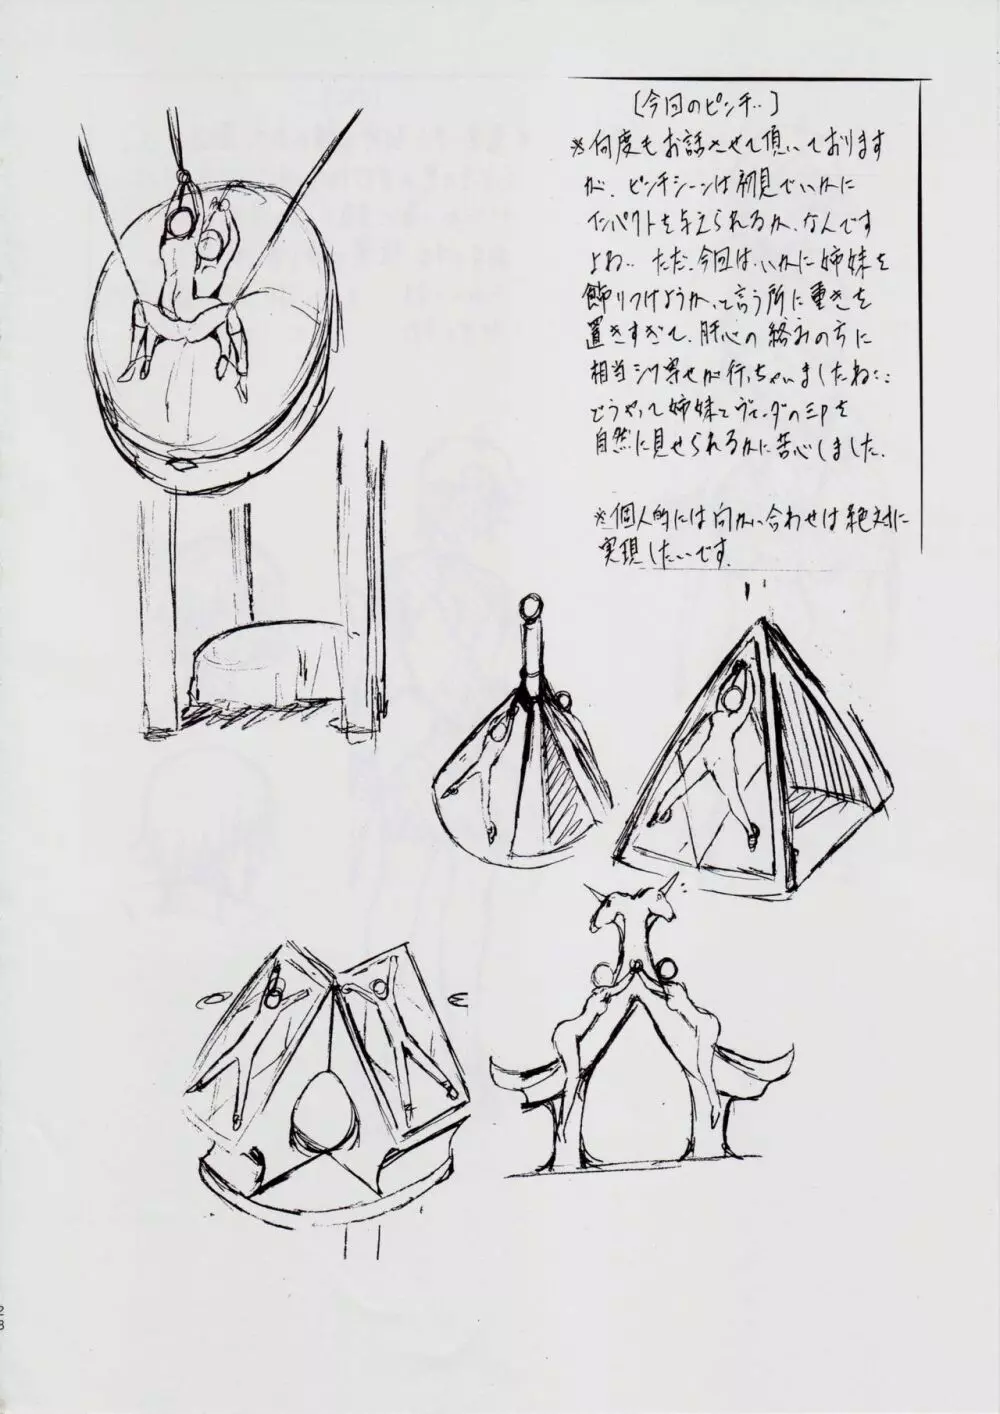 [今回のピンチ‥]
※何度もお話させて頂いております
が、ピンチシーンは初見でいかに
インパクトを与えられるか、なんです
よね‥ ただ、今回は、いかに姉妹を
飾りつけようか、って言う所に重きを
置きすぎて、肝心の絡みの方に
相当シワ寄せが行っちゃいましたね‥
どうやって姉妹とヴェーダの三Pを
自然に見せられるかに苦心しました。
※個人的には向かい合わせは絶対に
実現したいです。
28